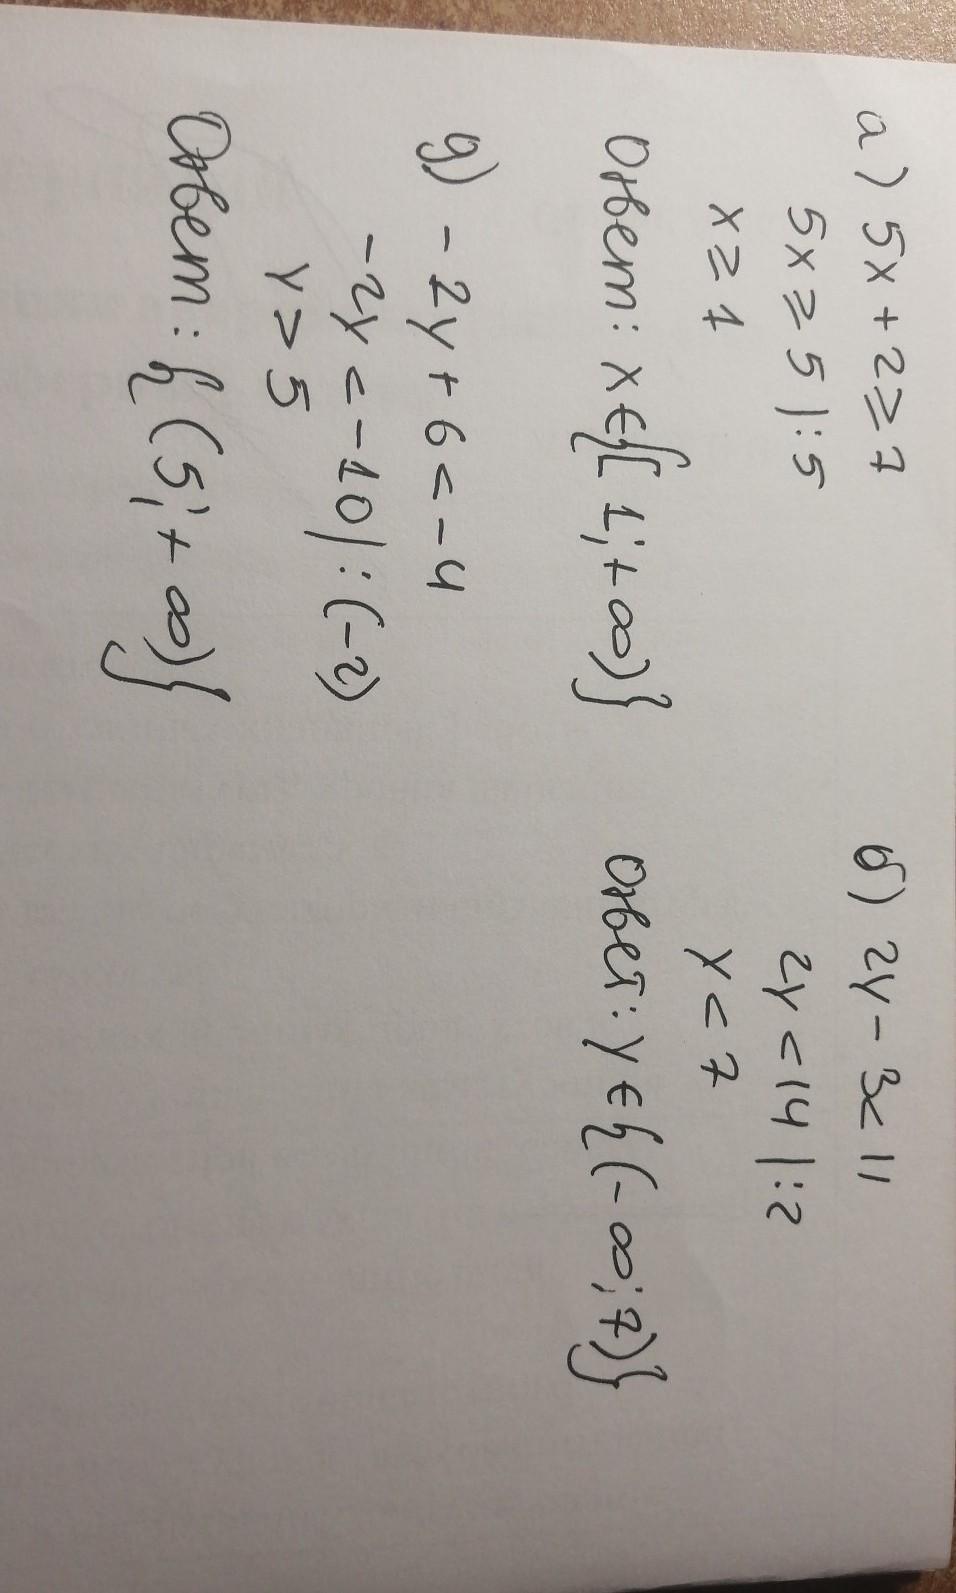 а) 5x + 2 ≥ 7
5x ≥ 5 |:5
x ≥ 1
Ответ: x ∈ {[1; +∞)}
б) 2y - 3 < 11
2y < 14 |:2
y < 7
Ответ: y ∈ {(-∞; 7)}
д) -2y + 6 < -4
-2y < -10 |:(-2)
y > 5
Ответ: {(5; +∞)}